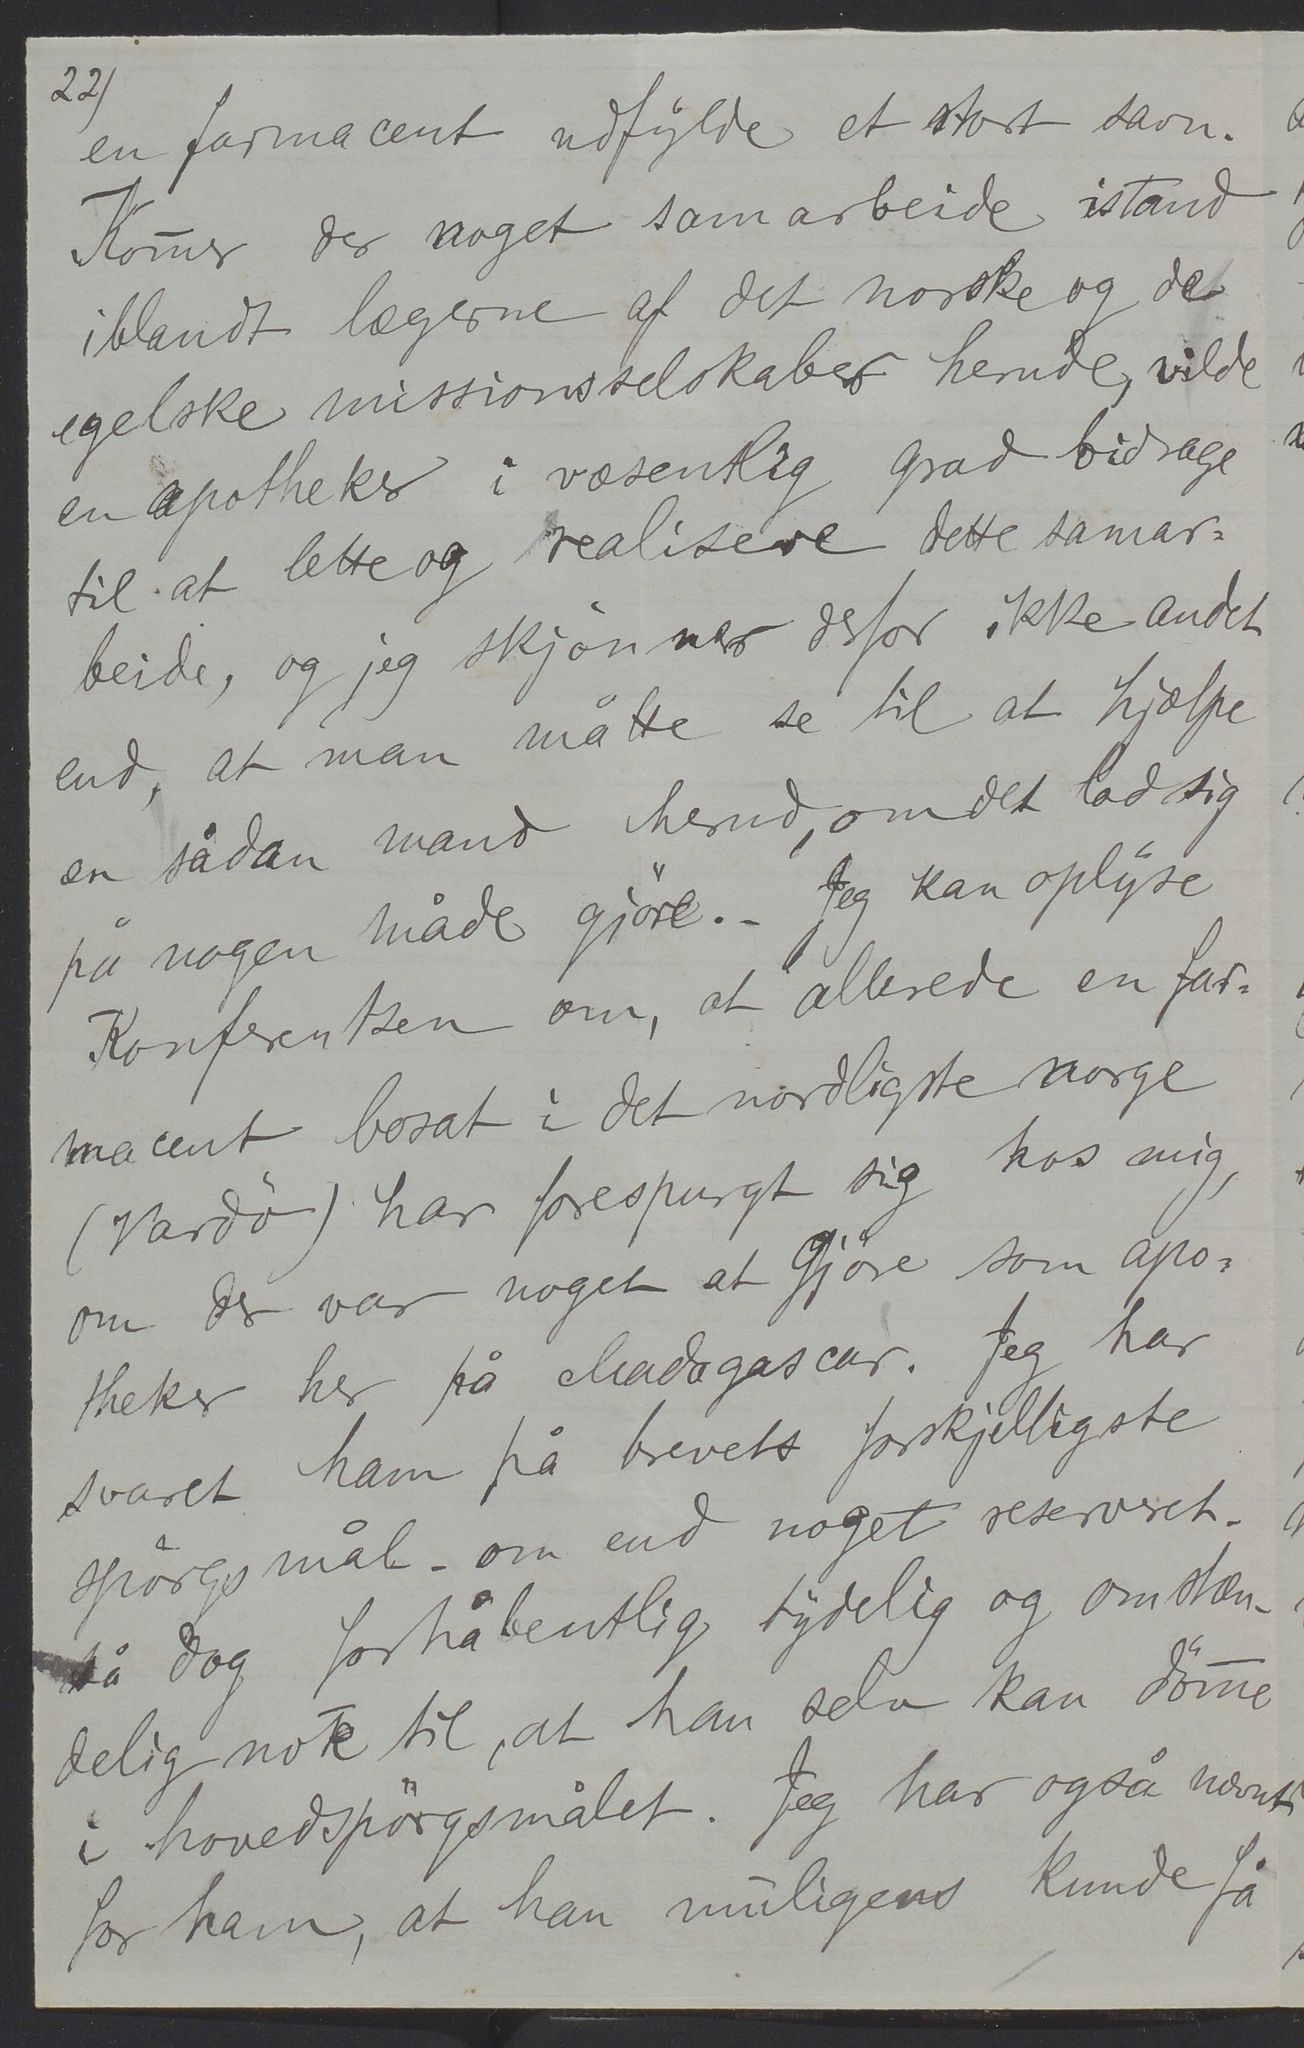 22)
en farmacent udfylde et stort savn.
Kom̅er der noget samarbeide istand
iblandt lægerne af det norske og de
egelske missionsselskaber herude, vilde
en apotheker i væsentlig grad bidrage
til at lette og realisere dette samar=
beide, og jeg skjönner derfor ikke andet
end, at man måtte se til at hjælpe
en sådan mand herud, om det lod sig
på nogen måde gjöre.- Jeg kan oplyse
Konferentsen om, at allerede en far=
macent bosat i det nordligste norge
(Vardö) har forespurgt sig hos mig,
om der var noget at gjöre som apo=
theker her på Madagascar. Jeg har
svaret ham på brevets forskjelligste
spörgsmål - om end noget reserveret -
så dog forhåbentlig tydelig og omstæn-
delig nok til, at han selv kan döm̅e
i hovedspörgsmålet. Jeg har også nævnt
for ham, at han muligens kunde få